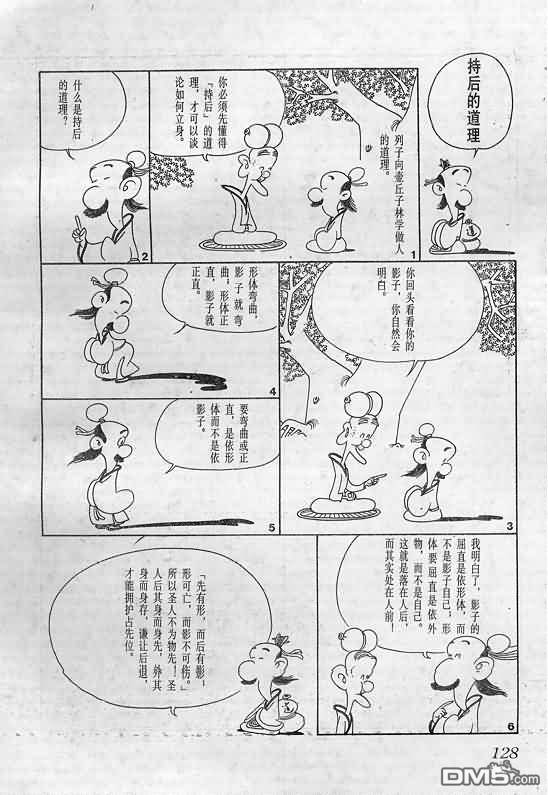 持后的道理
列子向壶丘子林学做人
的道理。
你必须先懂得
「持后」的道
理，才可以谈
论如何立身。
1
什么是持后
的道理？
2
你回头看看你的
影子，你自然会
明白。
3
形体弯曲，
影子就弯
曲；形体正
直，影子就
正直。
4
要弯曲或正
直，是依形
体而不是依
影子。
5
我明白了，影子的
屈直是依形体，而
不是影子自己；形
体要屈直是依外
物，而不是自己。
这就是落在人后，
而其实处在人前！
6
「先有形，而后有影；
形可亡，而影不可伤。」
所以圣人不为物先！圣
人后其身而身先，外其
身而身存，谦让后退，
才能拥护占先位。
道
128
DM5.com